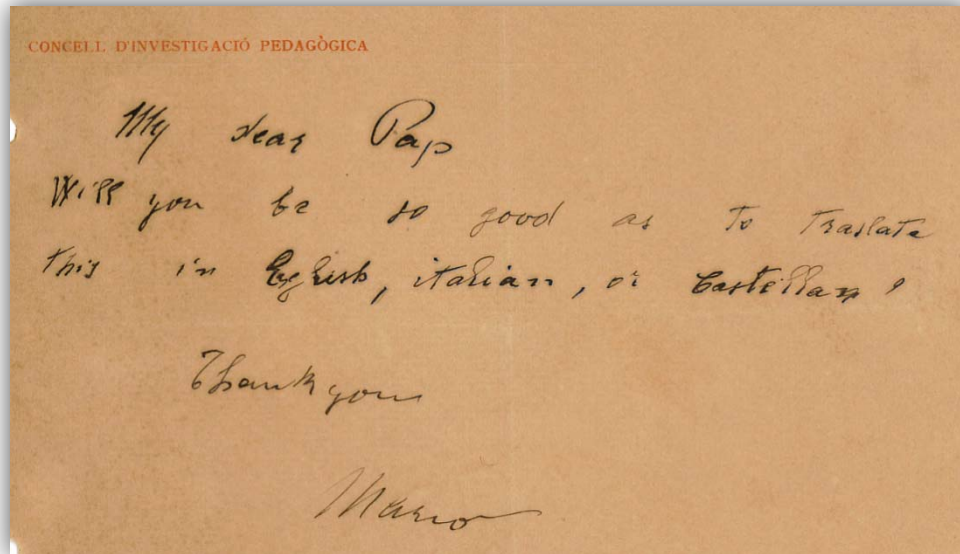 CONCELL D'INVESTIGACIÓ PEDAGÒGICA
My dear Pap
Will you be so good as to traslate
this in English, italian, or Castellan ?
Thank you
Mario